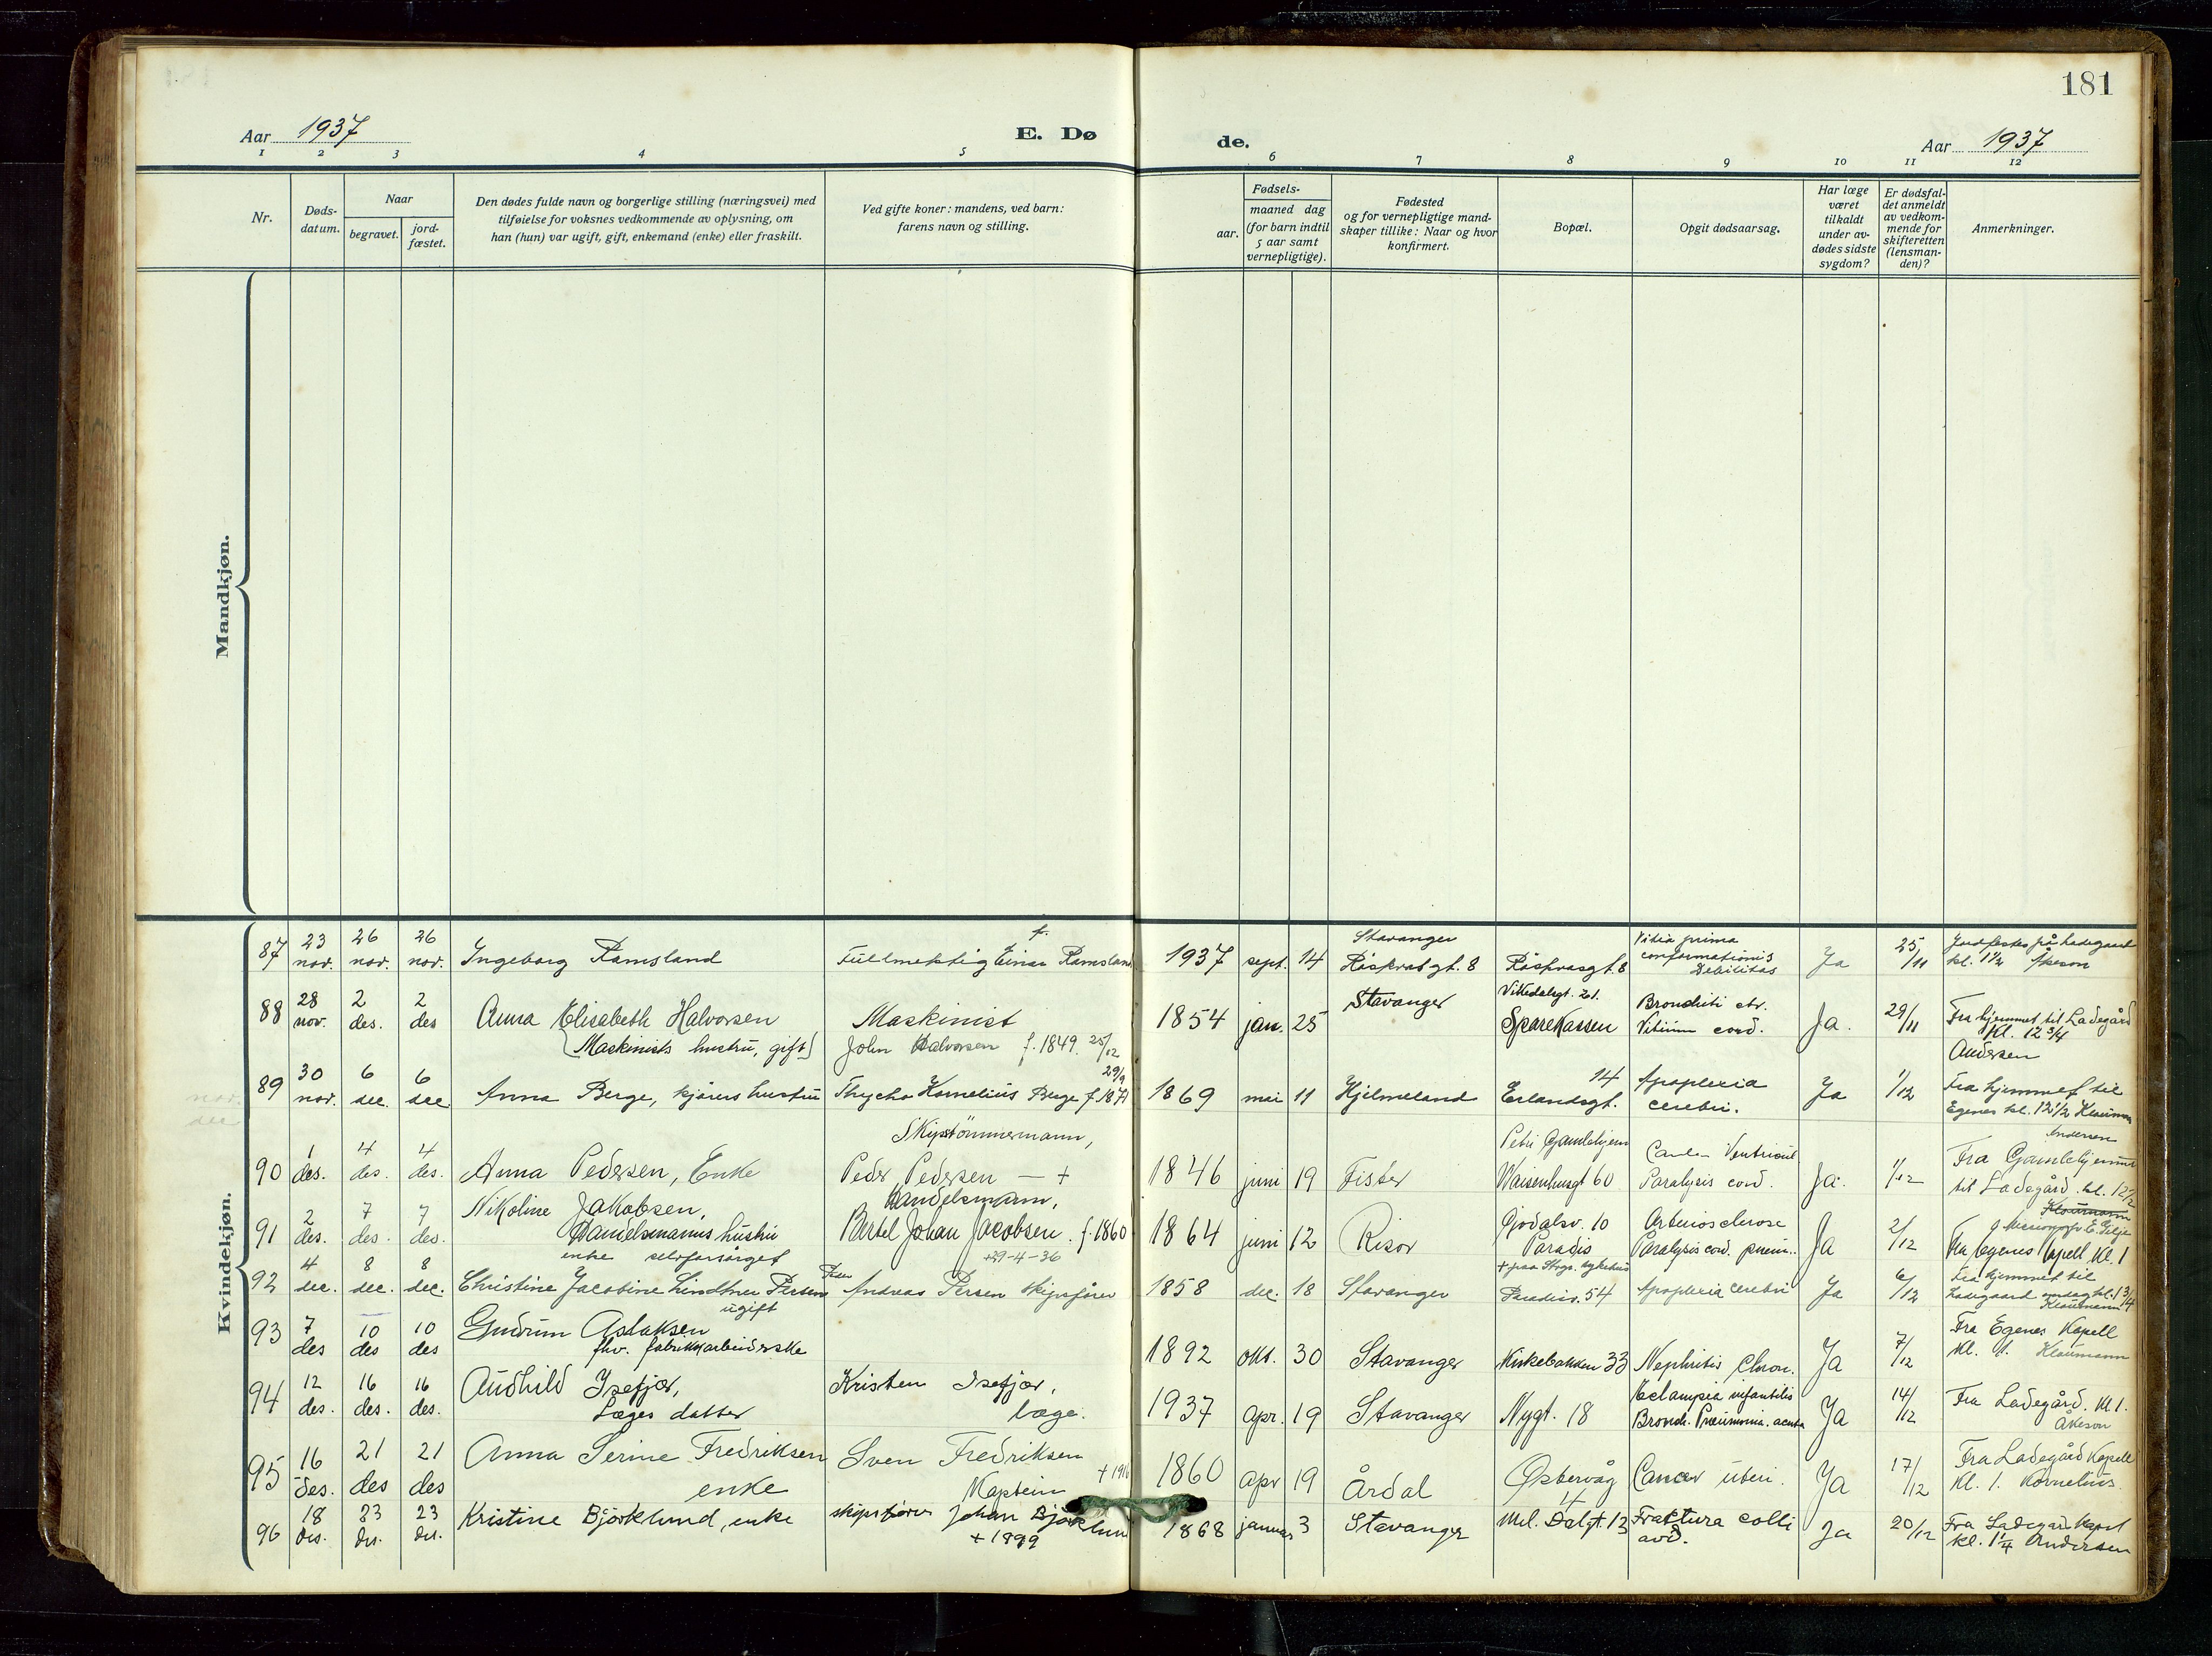 181
Aar 1937
E. Dø
de.
Aar 1937
1 2 3 4 5 6 7 8 9 10 11 12
Nr.
Døds-
datum.
Naar
begravet.
jord-
fæstet.
Den dødes fulde navn og borgerlige stilling (næringsvei) med
tilføielse for voksnes vedkommende av oplysning, om
han (hun) var ugift, gift, enkemand (enke) eller fraskilt.
Ved gifte koner: mandens, ved barn:
farens navn og stilling.
Fødsels-
aar.
maaned dag
(for barn indtil
5 aar samt
vernepligtige).
Fødested
og for vernepligtige mand-
skaper tillike: Naar og hvor
konfirmert.
Bopæl.
Opgit dødsaarsag.
Har læge
været
tilkaldt
under av-
dødes sidste
sygdom?
Er dødsfal-
det anmeldt
av vedkom-
mende for
skifteretten
(lensman-
den)?
Anmerkninger.
Mandkjøn.
Kvindekjøn.
87 23 nov. 26 nov. 26 nov. Ingeborg Ramsland
f.
Fullmektig Einar Ramsland
1937 sept. 14
Stavanger
Råskvatgt. 8
Råskvasgt. 8
Vitia prima
conformationis
Debilitas
Ja 25/11
Jordfestes på Ladegaard
kl. 1½ Åkeson
88 28 nov. 2 des. 2 des Anna Elisabeth Halvorsen
(Maskinists hustru, gift)
Maskinist
John Halvorsen f. 1849. 25/12
1854 jan. 25 Stavanger
Vikedalsgt. 21.
Sparekassen
Bronchiti chr.
Vitium cord.
Ja. 29/11
Fra hjemmet til Ladegård
Kl. 12 3/4
Andersen
89 30 nov. 6 dec. 6 dec Anna Berge, kjørers hustru
29/9
Thycho Kornelius Berge f. 1871
1869 mai 11 Hjelmeland
14
Erlandsgt.
Apoplexia
cerebri.
Ja 1/12
Fra hjemmet til
Egenes kl. 12 1/2 Klaumann
90 1 des. 4 des. 4 des. Anna Pedersen, Enke
Skipstømmermann,
Peder Pedersen — +
1846 juni 19 Fister
Petri Gamlehjem
Waisenhusgt 60
Ventricul
Paralysis cord.
Ja. 1/12
Andersen
Fra Gamlehjemmet
til Ladegård. kl. 12 1/2
Klaumann
91 2 des. 7 des. 7 des. Nikoline Jakobsen,
Handelsmanns hustru
Handelsmann,
Bertel Johan Jacobsen. f. 1860
+29-4-36
1864 juni 12 Risør
Gjodalsv. 10
Paradis
Arteriosclerose
Paralysis cord. pneum..
Ja 2/12
Fra Egenes Kapell kl. 1
92 4 dec. 8 dec. 8 dec. enke selvforsørget
Christine Jacobine Lindtner Persen
Andreas Persen skipsfører
1858 dec. 18 Stavanger
+ paa Stvgr. sykehus
Paradisv. 54
Apoplexia cerebri
Ja 6/12
Fra hjemmet til
Ladegaard onsdag kl. 1 3/4
Klaumann
93 7 des 10 des 10 des Gudrun Aslaksen
ugift
fhv. fabrikkarbeiderske
1892 okt. 30 Stavanger Kirkebakken 33 Nephritis chron. Ja 7/12
Fra Egenes Kapell
Kl. 1. Klaumann
94 12 des. 16 des. 16 des. Audhild Isefjær,
Læges datter
Kristen Isefjær,
læge.
1937 apr. 19 Stavanger Nygt. 18
Eclampsia infantilis
Bronch. Pneumonia. acuta
Ja 14/12
Fra Ladegård. Kl 1.
Åkeson
95 16 des. 21 des 21 des Anna Serine Fredriksen
enke
Sven Fredriksen
Kaptein
1860 apr 19 Årdal
Østervåg
4
Cancer uteri. Ja 17/12
Fra Ladegård Kapell
Kl. 1. Kornelius.
96 18 des. 23 des. 23 des. Kristine Björklund, enke
skipsfører Johan Björklund
+ 1899
1868 januar 3 Stavanger Mel. Dalgt. 13
Fraktura colli
Ja 20/12
Fra Ladegård kapel
kl. 1 1/4 Andersen